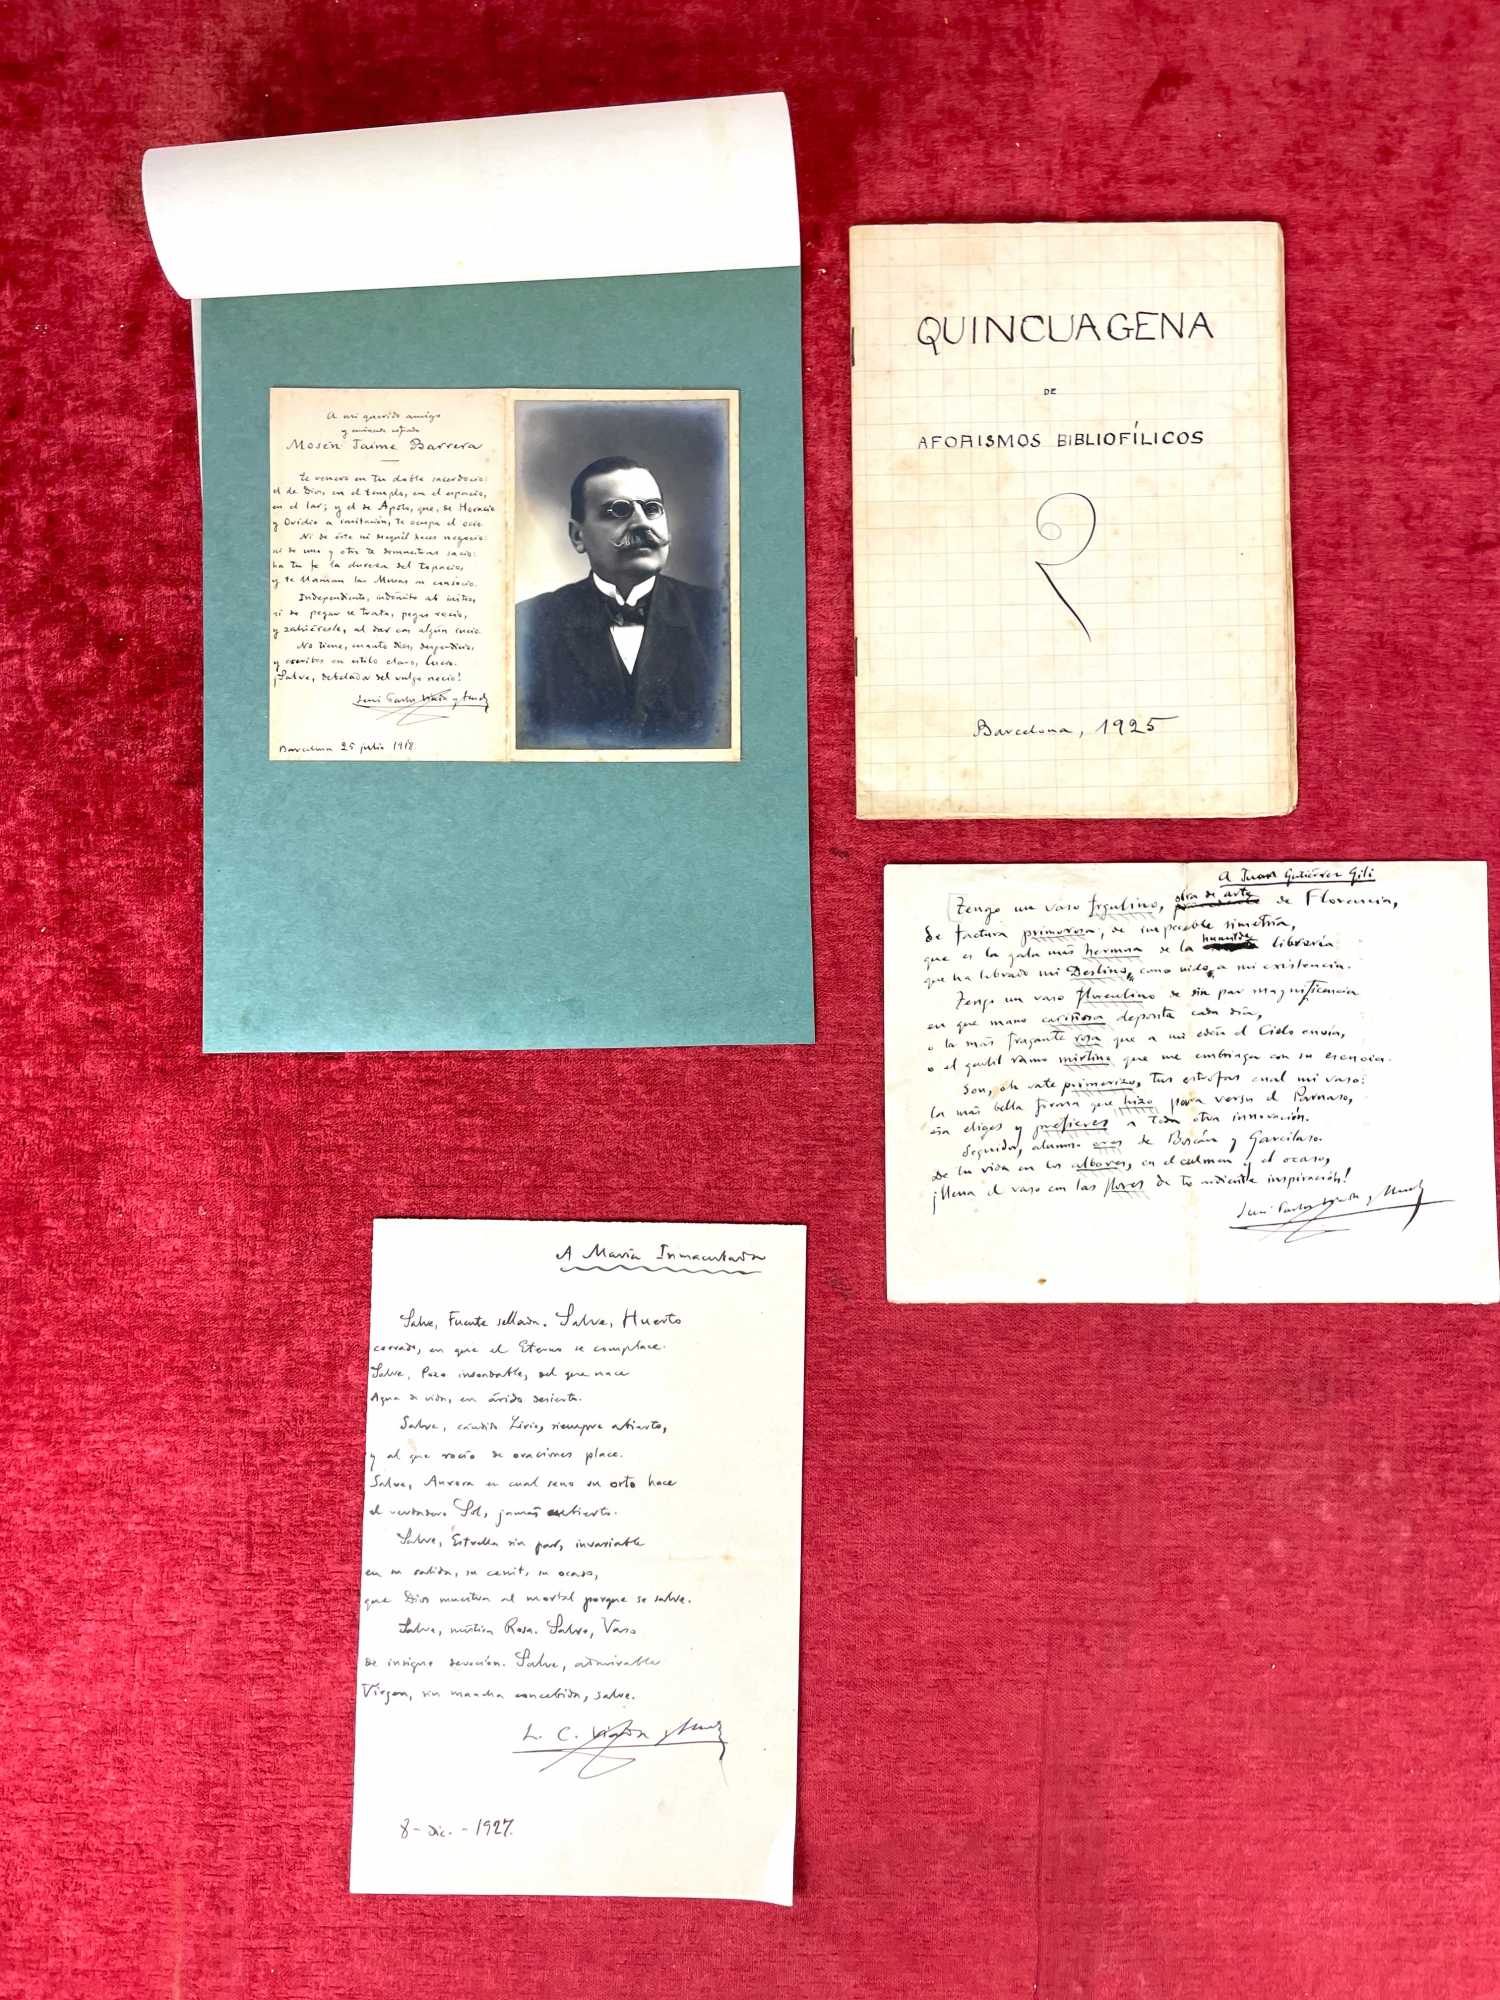 A mi querido amigo
y eminente cofrade
Mosén Jaime Barrera
Te venero en tu doble sacerdocio:
el de Dios, en el templo, en el espacio,
en el lar; y el de Apolo, que, de Horacio
y Ovidio a imitación, te ocupa el ocio.
Ni de éste ni de aquél haces negocio:
ni de uno y otro te demuestras sacio:
ha tu fe la dureza del topacio
y te llaman las Musas su consocio.
Independiente, indómito al
si de pegar se trata, pegas recio,
y al dar con algún
No tiene, cuanto dices, desperdicio,
y escribes en estilo claro,
¡Salve, debelador del vulgo necio!
Luis Carlos Viada y Lluch
Barcelona 25 julio 1918.
QUINCUAGENA
DE
AFORISMOS BIBLIOFÍLICOS
Barcelona, 1925
A Juan Gutiérrez Gili
Tengo un vaso, obra de arte de Florencia,
de factura primorosa, de impecable simetría,
que es la gala más hermosa de la humilde librería
que ha librado mi Destino, como nido, a mi existencia.
Tengo un vaso florentino de sin par magnificencia
en que mano cariñosa deposita cada día,
o la más fragante rosa que a mi edén el Cielo envía,
o el gentil ramo mirtino que me embriaga con su esencia.
Son, oh vate primerizo, tus estrofas cual mi vaso:
la más bella forma que hizo para versos el Parnaso,
esa eliges y prefieres a toda otra innovación.
Seguidor, alumno eres de Boscán y Garcilaso.
De tu vida en los albores, en el culmen y el ocaso,
¡llena el vaso con las flores de tu ardiente inspiración!
Luis Carlos Viada y Lluch
A María Inmaculada
Salve, Fuente sellada. Salve, Huerto
cerrado, en que el Eterno se complace.
Salve, Pozo insondable, del que nace
Agua de vida, en árido desierto.
Salve, cándido Lirio, siempre abierto,
y al que rocío de oraciones place.
Salve, Aurora en cual seno su orto hace
el verdadero Sol, jamás cubierto.
Salve, Estrella sin par, invariable
en su salida, su cenit, su ocaso,
que Dios muestra al mortal porque se salve.
Salve, mística Rosa. Salve, Vaso
de insigne devoción. Salve, admirable
Virgen, sin mancha concebida, salve.
L. C. Viada y Lluch
8 - Dic. - 1927.